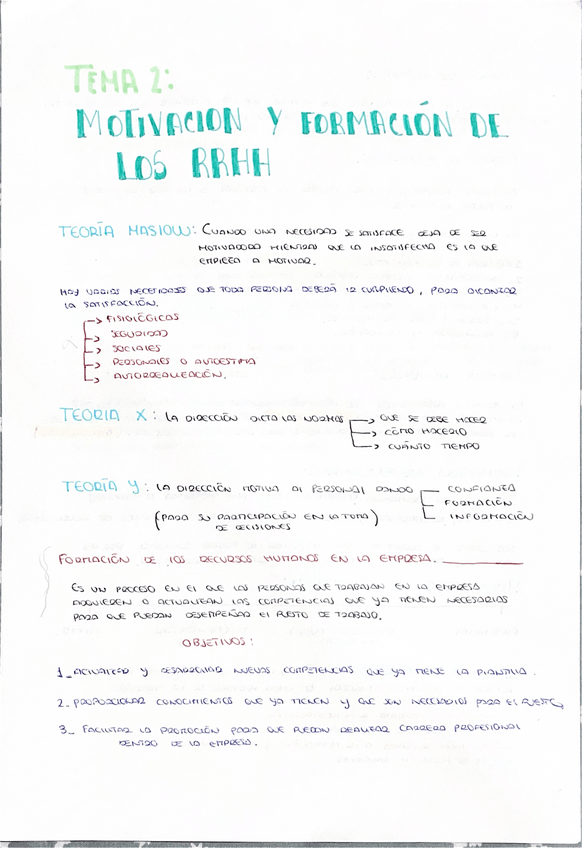 TEMA 2:
MOTIVACION Y FORMACIÓN DE
LOS RRHH
TEORÍA MASLOW: CUANDO UNA NECESIDAD SE SATISFACE DEJA DE SER
MOTIVADORA MIENTRAS QUE LA INSATISFECHA ES LA QUE
EMPIEZA A MOTIVAR.
HAY VARIAS NECESIDADES QUE TODA PERSONA DEBERÁ IR CUMPLIENDO, PARA ALCANZAR
LA SATISFACCIÓN.
→ FISIOLÓGICAS
→ SEGURIDAD
→ SOCIALES
→ PERSONALES O AUTOESTIMA
→ AUTORREALIZACIÓN.
TEORIA X: LA DIRECCIÓN DICTA LAS NORMAS → QUE SE DEBE HACER
→ CÓMO HACERLO
→ CUÁNTO TIEMPO
TEORÍA Y: LA DIRECCIÓN MOTIVA AL PERSONAL DANDO CONFIANZA
FORMACIÓN
(PARA SU PARTICIPACIÓN EN LA TOMA INFORMACIÓN
DE DECISIONES)
FORMACIÓN DE LOS RECURSOS HUMANOS EN LA EMPRESA.
ES UN PROCESO EN EL QUE LAS PERSONAS QUE TRABAJAN EN LA EMPRESA
ADQUIEREN O ACTUALIZAN LAS COMPETENCIAS QUE YA TIENEN NECESARIAS
PARA QUE PUEDAN DESEMPEÑAR EL PUESTO DE TRABAJO.
OBJETIVOS:
1_ ACTUALIZAR Y DESARROLLAR NUEVAS COMPETENCIAS QUE YA TIENE LA PLANTILLA.
2_ PROPORCIONAR CONOCIMIENTOS QUE YA TIENEN Y QUE SON NECESARIOS PARA EL PUESTO
3_ FACILITAR LA PROMOCIÓN PARA QUE PUEDAN REALIZAR CARRERA PROFESIONAL
DENTRO DE LA EMPRESA.